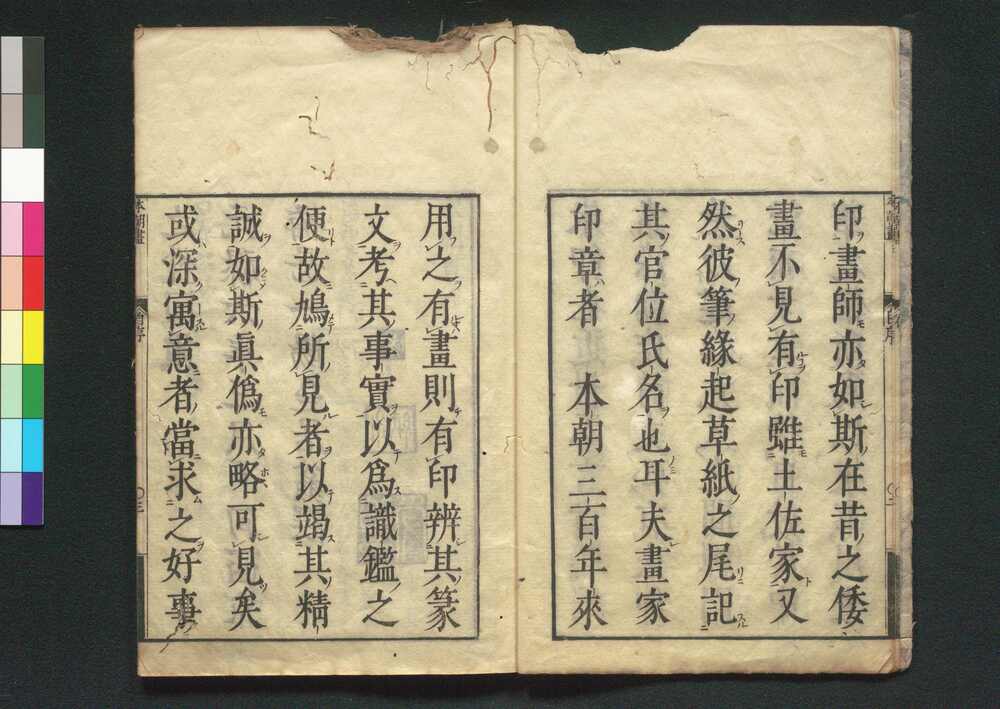 印畫師亦如斯在昔之倭
畫不見有印雖土佐家又
然彼筆緣起草紙之尾記
其官位氏名也耳夫畫家
印章者 本朝三百年來
用之有畫則有印辨其篆
文考其事實以爲識鑑之
便故鳩所見者以竭其精
誠如斯眞僞亦略可見矣
或深寓意者當求之好事
本朝畫